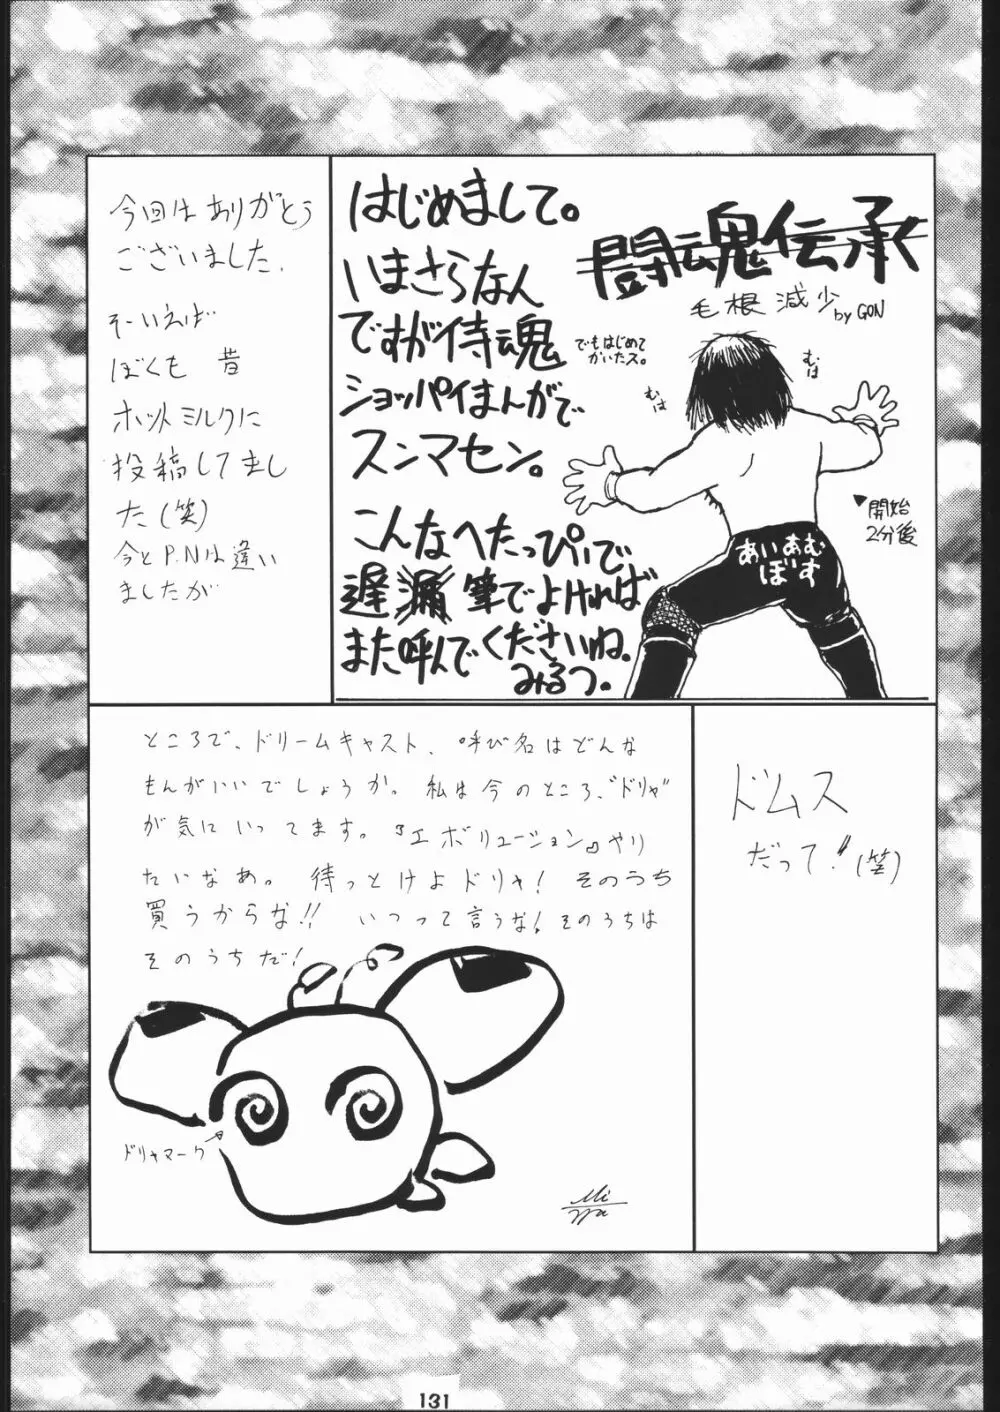 はじめまして。
いまさらなん
ですが侍魂
ショッパイまんがで
スンマセン。
こんなへたっぴぃで
遅漏筆でよければ
また呼んでくださいね。
みるつ。
闘魂伝承
毛根減少 by GON
でもはじめて
かいたス。
むは
むは
▼開始
2分後
あいあむ
ぼす
今回はありがとう
ございました.
そーいえば
ぼくも 昔
ホットミルクに
投稿してまし
た(笑)
今とP.Nは違い
ましたが
ドムス
だって!!(笑)
ところで、ドリームキャスト、呼び名はどんな
もんがいいでしょうか。私は今のところ、“ドリャ”
が気にいってます。『エボリューション』やり
たいなぁ。 待っとけよドリャ! そのうち
買うからな!! いつって言うな! そのうちは
そのうちだ!
ドリャマーク
Mi
ya
131